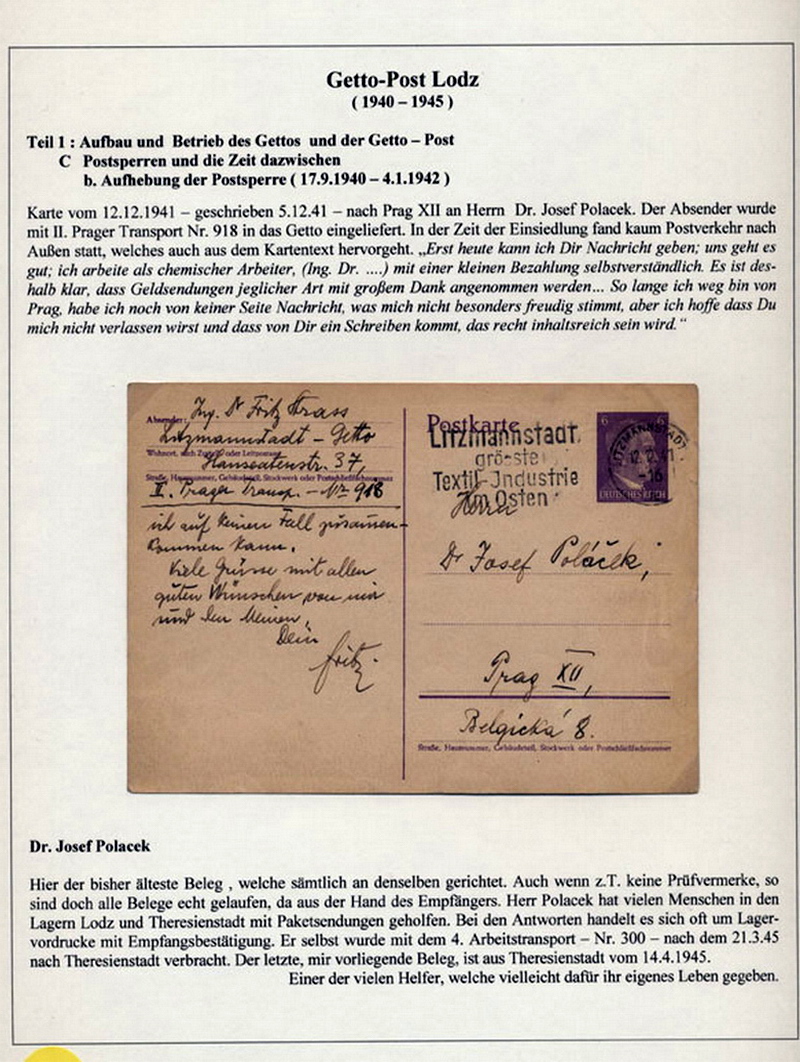 Getto-Post Lodz
( 1940 – 1945 )
Teil 1 : Aufbau und Betrieb des Gettos und der Getto – Post
C Postsperren und die Zeit dazwischen
b. Aufhebung der Postsperre ( 17.9.1940 – 4.1.1942 )
Karte vom 12.12.1941 – geschrieben 5.12.41 – nach Prag XII an Herrn Dr. Josef Polacek. Der Absender wurde
mit II. Prager Transport Nr. 918 in das Getto eingeliefert. In der Zeit der Einsiedlung fand kaum Postverkehr nach
Außen statt, welches auch aus dem Kartentext hervorgeht. „Erst heute kann ich Dir Nachricht geben; uns geht es
gut; ich arbeite als chemischer Arbeiter, (Ing. Dr. ....) mit einer kleinen Bezahlung selbstverständlich. Es ist des-
halb klar, dass Geldsendungen jeglicher Art mit großem Dank angenommen werden... So lange ich weg bin von
Prag, habe ich noch von keiner Seite Nachricht, was mich nicht besonders freudig stimmt, aber ich hoffe dass Du
mich nicht verlassen wirst und dass von Dir ein Schreiben kommt, das recht inhaltsreich sein wird.“
Absender: Ing. Dr Fritz Strass
Litzmannstadt – Getto
Wohnort, auch Zustell- oder Leitpostamt
Hanseatenstr. 37,
Straße, Hausnummer, Gebäudeteil, Stockwerk oder Postschließfachnummer
II. Prager Transp. – No 918
ich auf keinen Fall zusammen-
kommen kann.
Viele Grüsse mit allen
guten Wünschen von mir
und den Meinen,
Dein
Fritz.
Postkarte
Litzmannstadt
grösste
Textil-Industrie
im Osten
6 6
LITZMANNSTADT
12.12.41
-16
DEUTSCHES REICH
Herrn
Dr Josef Poláček,
Prag XII,
Belgická 8.
Straße, Hausnummer, Gebäudeteil, Stockwerk oder Postschließfachnummer
Dr. Josef Polacek
Hier der bisher älteste Beleg , welche sämtlich an denselben gerichtet. Auch wenn z.T. keine Prüfvermerke, so
sind doch alle Belege echt gelaufen, da aus der Hand des Empfängers. Herr Polacek hat vielen Menschen in den
Lagern Lodz und Theresienstadt mit Paketsendungen geholfen. Bei den Antworten handelt es sich oft um Lager-
vordrucke mit Empfangsbestätigung. Er selbst wurde mit dem 4. Arbeitstransport – Nr. 300 – nach dem 21.3.45
nach Theresienstadt verbracht. Der letzte, mir vorliegende Beleg, ist aus Theresienstadt vom 14.4.1945.
Einer der vielen Helfer, welche vielleicht dafür ihr eigenes Leben gegeben.